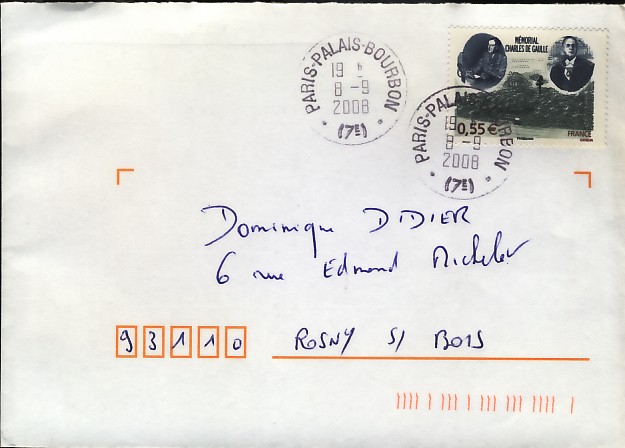 MÉMORIAL
CHARLES DE GAULLE
0,55 €
FRANCE
PARIS-PALAIS-BOURBON
19 h
8 -9
2008
(7E)
PARIS-PALAIS-BOURBON
19
8 -9
2008
(7E)
Dominique DIDIER
6 rue Edmond Michelet
93110 ROSNY S/ BOIS